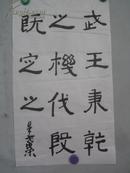 武王秉乾
之機伐殷
既定之